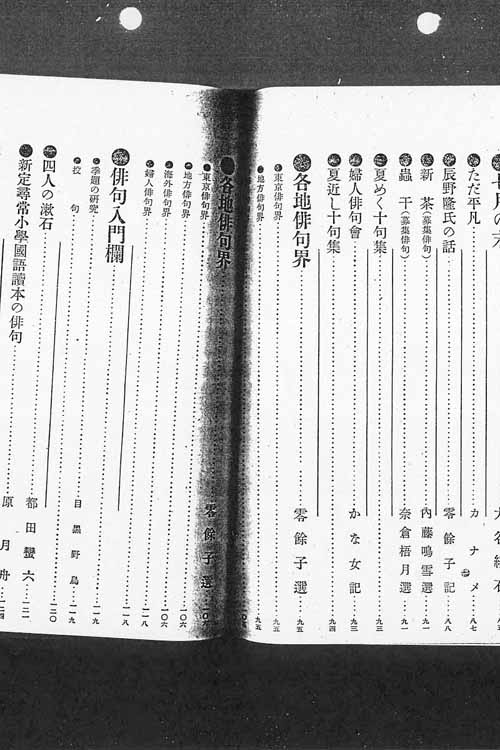 ただ平凡 カナメ 八七
辰野隆氏の話 零餘子記 八八
新茶(募集俳句) 內藤鳴雪選 九一
蟲干(募集俳句) 奈倉梧月選 九一
夏めく十句集 九三
婦人俳句會 かな女記 九三
夏近し十句集 九四
各地俳句界 零餘子選 九五
東京俳句界 九五
地方俳句界 九五
各地俳句界 零餘子選
東京俳句界
地方俳句界 一〇六
海外俳句界 一〇六
婦人俳句界 一一八
俳句入門欄 一一八
季題の硏究 一一九
投句 目黑野鳥 一一九
四人の漱石 都田蠻六 一二〇
新定尋常小學國語讀本の俳句 原月舟